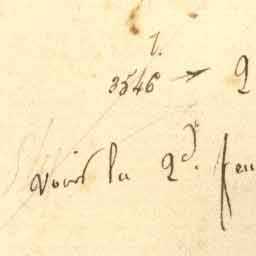 1.
3546 → 2
voir la 2d. feu